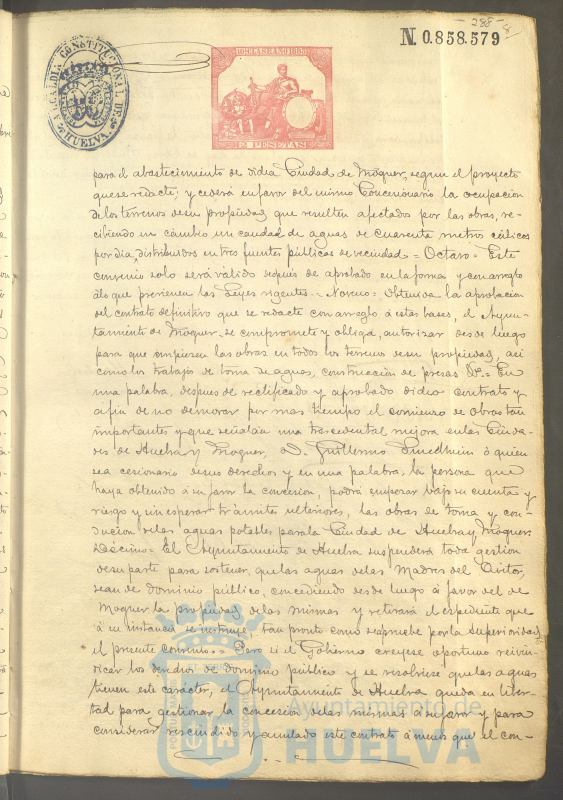 288
N. 0.858.579
ALCALDIA CONSTITUCIONAL DE HUELVA
10ª CLASE AÑO 1885
2 PESETAS
para el abastecimiento de dicha Ciudad de Moguer, segun el proyecto
que se redacte; y cederá en favor del mismo Concesionario la ocupacion
de los terrenos de su propiedad que resulten afectados por las obras, re-
cibiendo en cambio un caudal de aguas de cuarenta metros cúbicos
por dia, distribuidos en tres fuentes públicas de vecindad = Octavo = Este
convenio solo será válido despues de aprobado en la forma y con arreglo
á lo que previenen las Leyes vigentes = Noveno = Obtenida la aprobacion
del contrato definitivo que se redacte con arreglo á estas bases, el Ayun-
tamiento de Moguer se compromete y obliga, autorizar desde luego
para que empiecen las obras en todos los terrenos de su propiedad, asi
como los trabajos de toma de aguas, construccion de presas &ª = En
una palabra, despues de ratificado y aprobado dicho contrato y
á fin de no demorar por mas tiempo el comienzo de obras tan
importantes y que señalan una trascedental mejora en las Ciuda-
des de Huelva y Moguer, D. Guillermo Sundheim ó quien
sea cesionario de sus derechos y en una palabra, la persona que
haya obtenido á su favor la concesion, podrá empezar bajo su cuenta y
riesgo y sin esperar trámites ulteriores, las obras de toma y con-
duccion de las aguas potables para la Ciudad de Huelva y Moguer.
Décimo = El Ayuntamiento de Huelva suspenderá toda gestion
de su parte para sostener, que las aguas de las Madres del Avitor,
sean de dominio público, concediendo desde luego á favor del de
Moguer la propiedad de las mismas y retirará el expediente que
á su instancia se instruye, tan pronto como se apruebe por la Superioridad
el presente convenio = Pero si el Gobierno creyese oportuno reivin-
dicar los derechos de dominio público y se resolviese que las aguas
tienen este carácter, el Ayuntamiento de Huelva queda en liber-
tad para gestionar la concesion de las mismas á su favor y para
considerar rescindido y anulado este contrato á menos que el con-
Ayuntamiento de
HUELVA